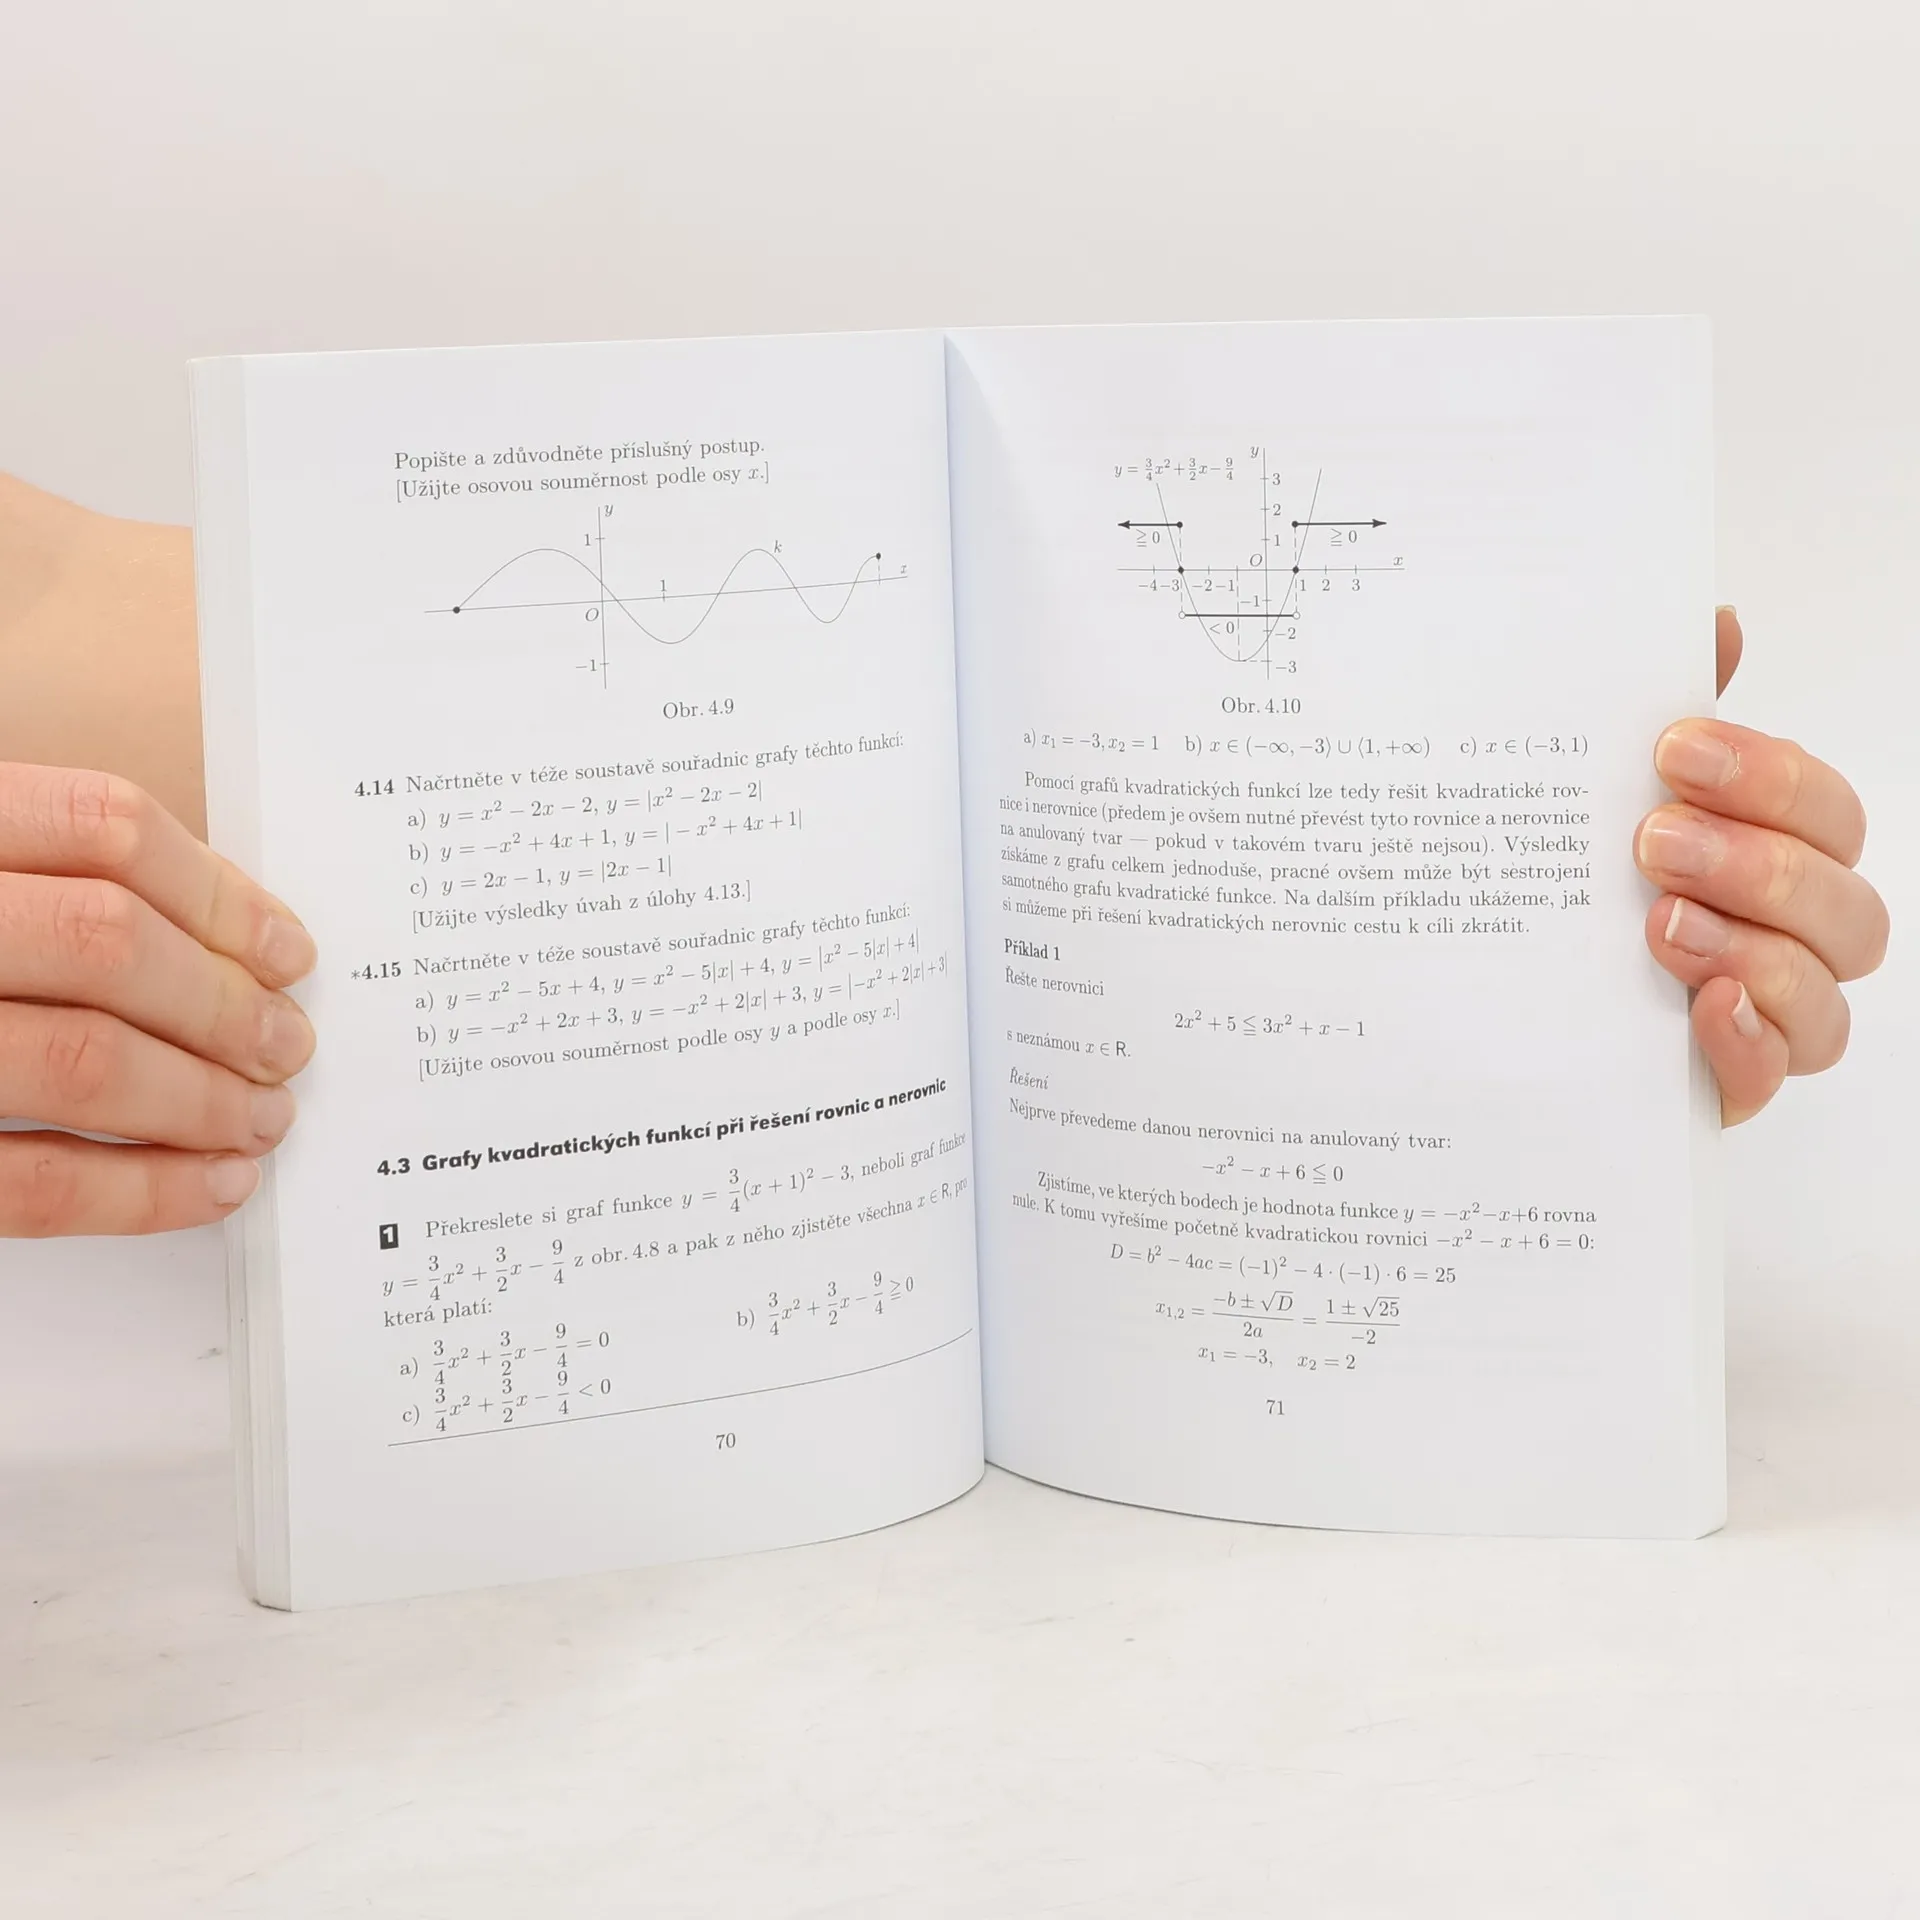 Popište a zdůvodněte příslušný postup.
[Užijte osovou souměrnost podle osy x.]
y
1
k
1
x
O
−1
Obr. 4.9
4.14 Načrtněte v téže soustavě souřadnic grafy těchto funkcí:
a) y = x² − 2x − 2, y = |x² − 2x − 2|
b) y = −x² + 4x + 1, y = | − x² + 4x + 1|
c) y = 2x − 1, y = |2x − 1|
[Užijte výsledky úvah z úlohy 4.13.]
*4.15 Načrtněte v téže soustavě souřadnic grafy těchto funkcí:
a) y = x² − 5x + 4, y = x² − 5|x| + 4, y = |x² − 5|x| + 4|
b) y = −x² + 2x + 3, y = −x² + 2|x| + 3, y = |−x² + 2|x| + 3|
[Užijte osovou souměrnost podle osy y a podle osy x.]
4.3 Grafy kvadratických funkcí při řešení rovnic a nerovnic
1 Překreslete si graf funkce y = 3/4(x + 1)² − 3, neboli graf funkce
y = 3/4x² + 3/2x − 9/4 z obr. 4.8 a pak z něho zjistěte všechna x ∈ R, pro
která platí:
a) 3/4x² + 3/2x − 9/4 = 0
b) 3/4x² + 3/2x − 9/4 ≧ 0
c) 3/4x² + 3/2x − 9/4 < 0
70
y = 3/4x² + 3/2x − 9/4
y
3
2
≧ 0
1
≧ 0
O
x
−4 −3 −2 −1 1 2 3
−1
< 0
−2
−3
Obr. 4.10
a) x₁ = −3, x₂ = 1 b) x ∈ (−∞, −3⟩ ∪ ⟨1, +∞) c) x ∈ (−3, 1)
Pomocí grafů kvadratických funkcí lze tedy řešit kvadratické rov-
nice i nerovnice (předem je ovšem nutné převést tyto rovnice a nerovnice
na anulovaný tvar — pokud v takovém tvaru ještě nejsou). Výsledky
získáme z grafu celkem jednoduše, pracné ovšem může být sestrojení
samotného grafu kvadratické funkce. Na dalším příkladu ukážeme, jak
si můžeme při řešení kvadratických nerovnic cestu k cíli zkrátit.
Příklad 1
Řešte nerovnici
2x² + 5 ≦ 3x² + x − 1
s neznámou x ∈ R.
Řešení
Nejprve převedeme danou nerovnici na anulovaný tvar:
−x² − x + 6 ≦ 0
Zjistíme, ve kterých bodech je hodnota funkce y = −x²−x+6 rovna
nule. K tomu vyřešíme početně kvadratickou rovnici −x² − x + 6 = 0:
D = b² − 4ac = (−1)² − 4 · (−1) · 6 = 25
x₁,₂ = −b ± √D / 2a = 1 ± √25 / −2
x₁ = −3, x₂ = 2
71